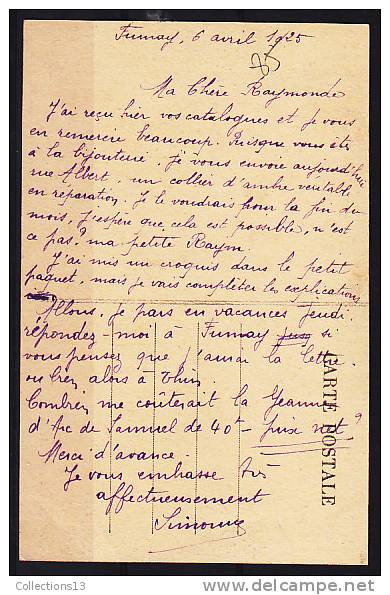 Fumay, 6 avril 1925
85
Ma Chère Raymonde
J'ai reçu hier vos catalogues et je vous
en remercie beaucoup. Puisque vous êtes
à la bijouterie, je vous envoie aujourd'hui
rue Albert, un collier d'ambre véritable
en réparation. Je le voudrais pour la fin du
mois, j'espère que cela est possible, n'est
ce pas? ma petite Raym.
J'ai mis un croquis dans le petit
paquet, mais je vais compléter les explications
Allons, je pars en vacances jeudi.
répondez-moi à Fumay si
vous pensez que j'aurai la lettre
ou bien alors à
Combien me coûterait la Jeanne
d'Arc de Samuel de 40 - prix net?
Merci d'avance.
Je vous embrasse très
affectueusement
Simonne
CARTE POSTALE
Collections13
www.delcampe.net